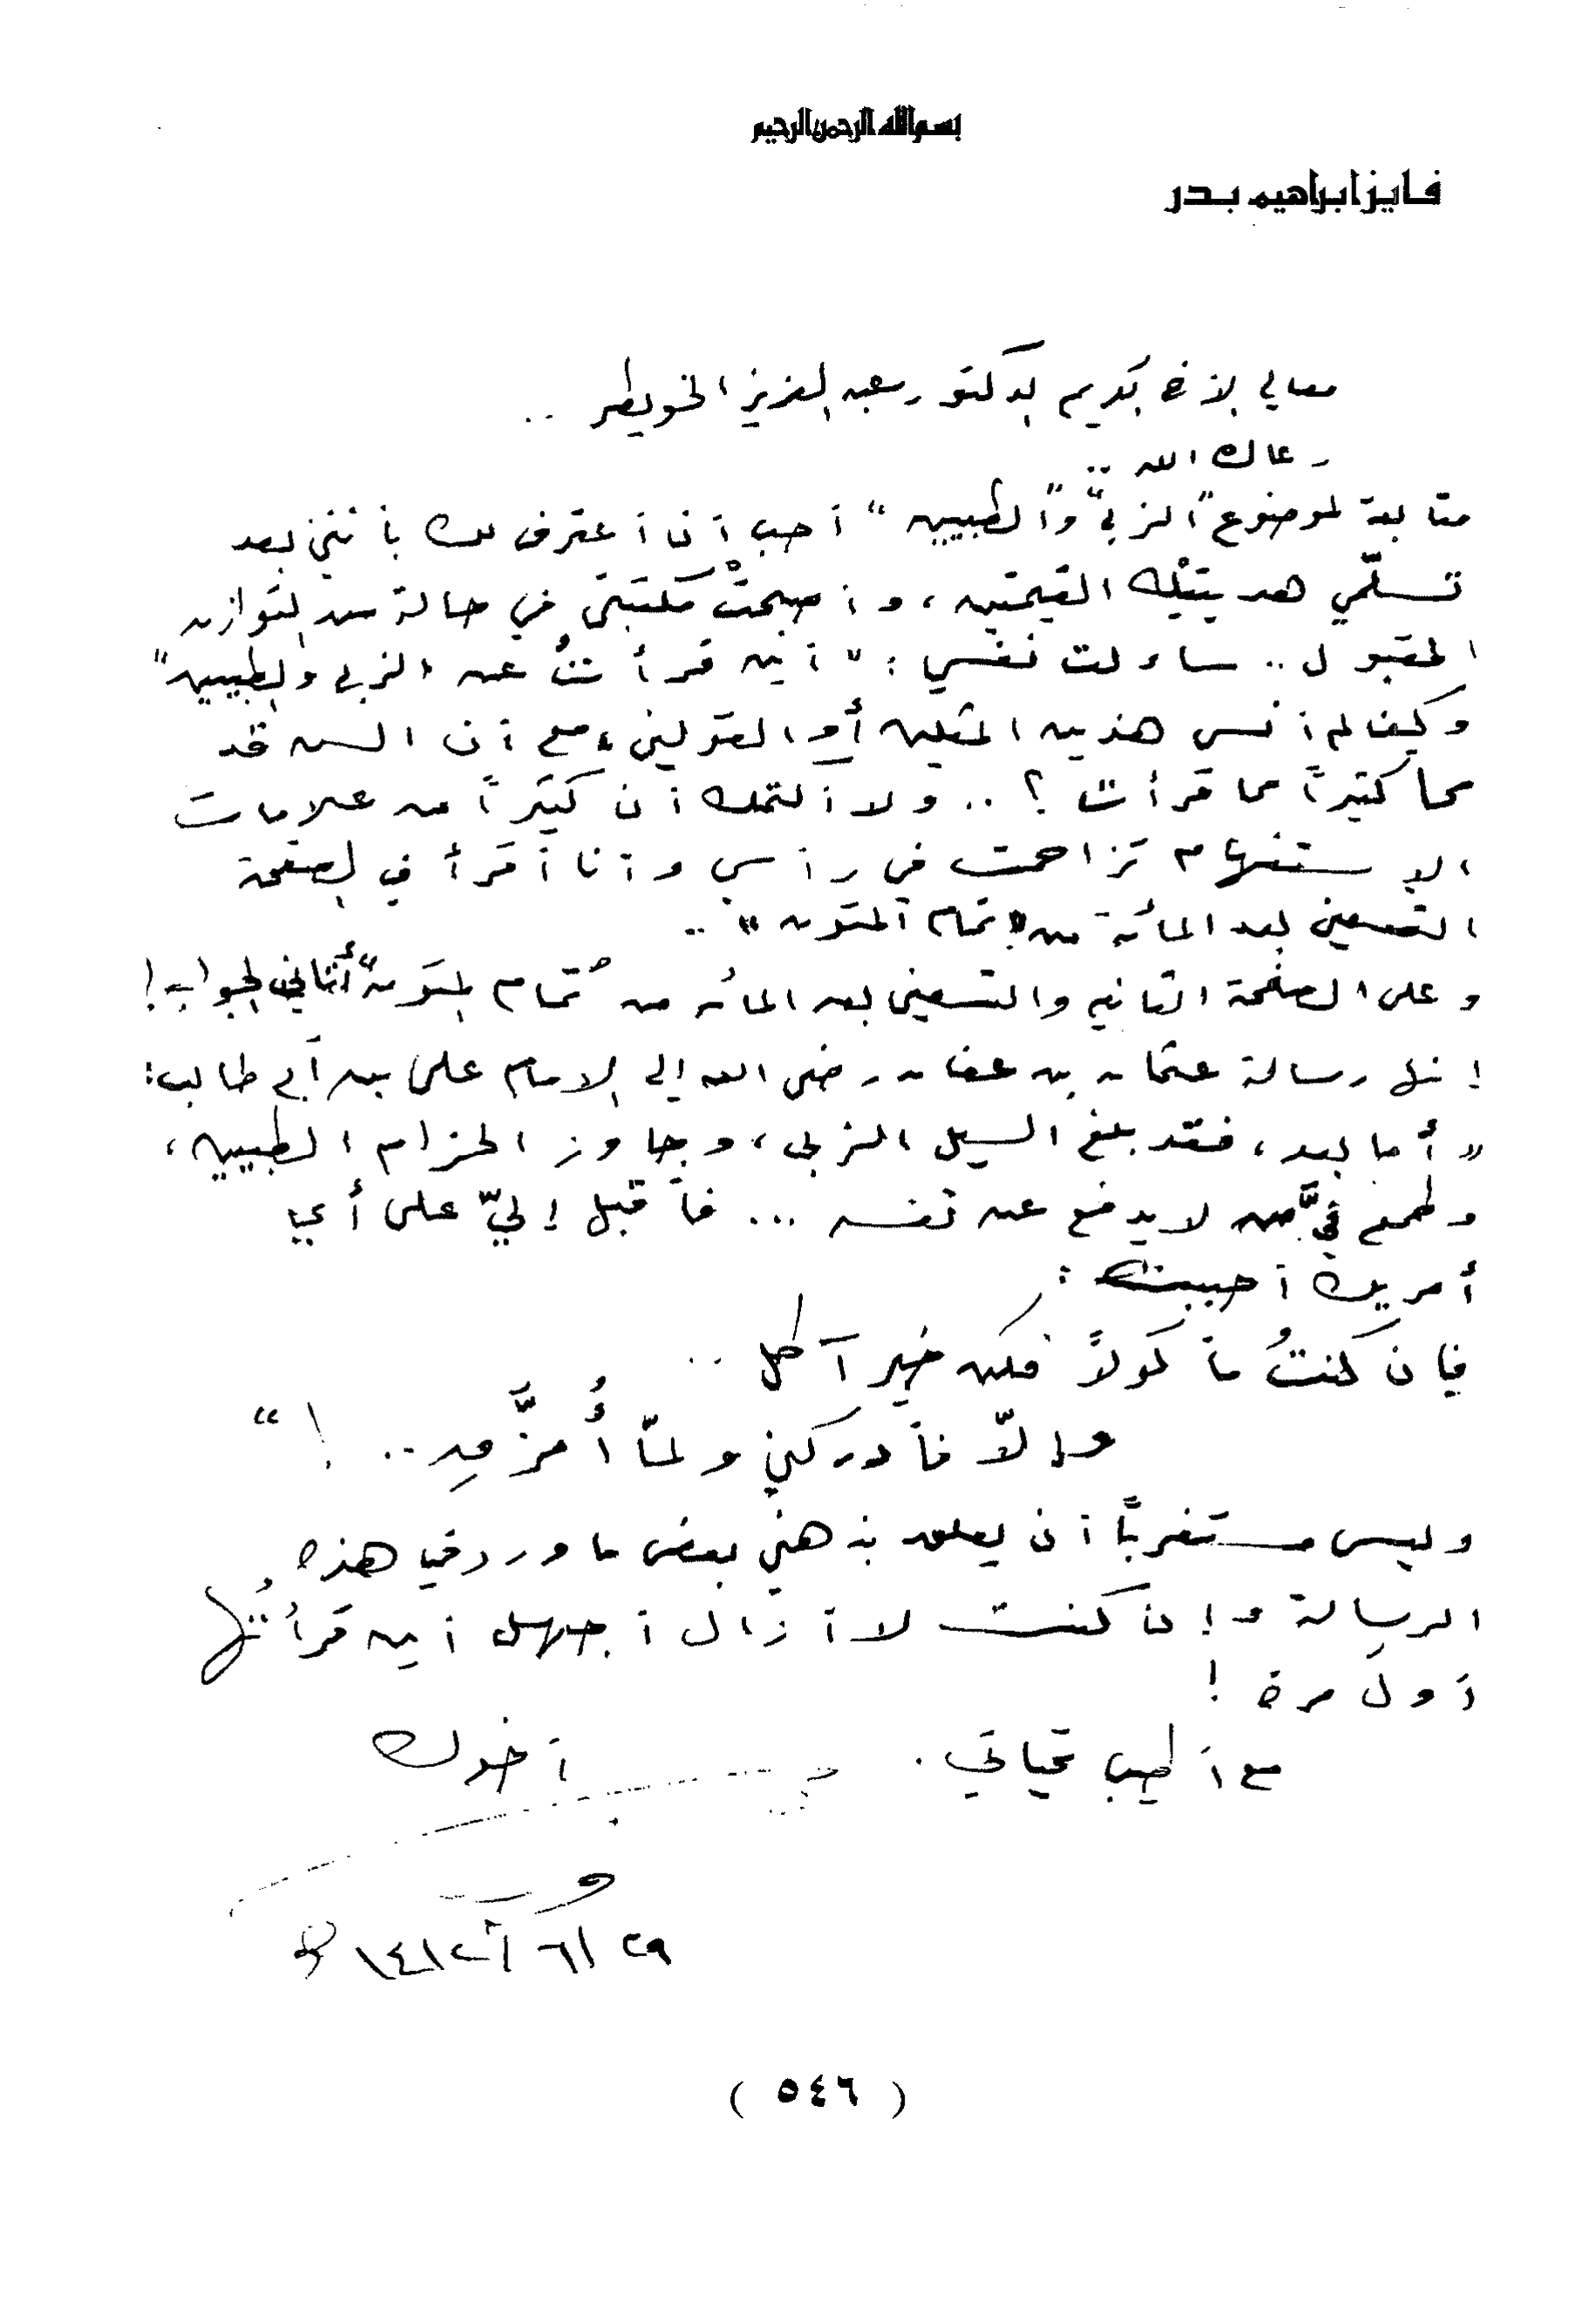 بسم الله الرحمن الرحيم
فايز ابراهيم بدر
معالي الأخ الكريم الدكتور عبد العزيز الخويطر ..
رعاك الله ..
متابعة لموضوع "الزبى" و"الطبيين" أحب أن أعترف لك بأنني بعد
تسلّمي هديتيْك القيمتين ، وأصبحتْ مكتبتي في حالة من التوازن
المقبول .. ساءلت نفسي : "أين قرأتُ عن الزبى والطبيين"
وكيف لم أنس هذين المثلين أو القولين، مع أن السن قد
محا كثيراً مما قرأت ؟ .. ولا أكتمك أن كثيراً من علامات
الاستفهام تزاحمت في رأسي وأنا أقرأ في الصفحة
التسعين بعد المائة من "تمام المتون" ..
وعلى الصفحة الثانية والتسعين بعد المائه من "تمام المتون" أتاني الجواب !
إنها رسالة عثمان بن عفان رضى الله إلى الإمام على بن أبي طالب :
"أما بعد ، فقد بلغ السيل الزبى ، وجاوز الحزام الطبيين ،
وطمع فيَّ من لا يدفع عن نفسه ... فأقبل إليّ على أي
أمريك أحببت :
فإن كنتُ مأكولاً فكن خير آكل ..
وإلّا فأدركني ولمّا أُمزَّقِ .. ! "
وليس مستغرباً أن يعلق بذهني بعض ما ورد في هذه
الرسالة وإن كنت لا أزال أجهل أين قرأتُها
أول مرة !
مع أطيب تحياتي . أخوك
٢٩/٦/١٤١٢ هـ
( ٥٤٦ )